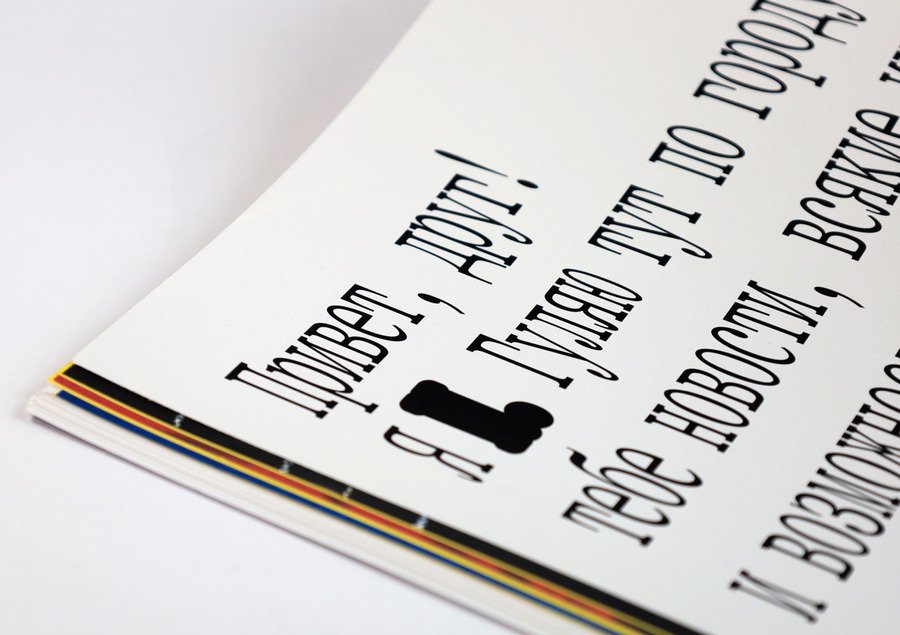 Привет, друг!
Я Гуляю тут по городу
тебе новости, всякие
и